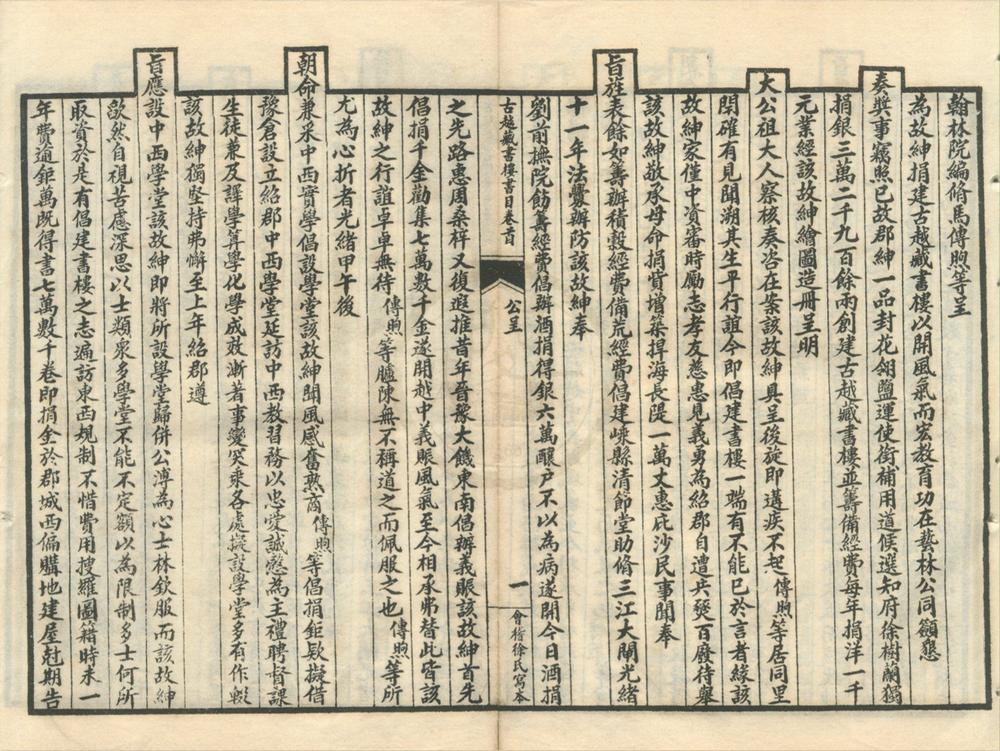 翰林院編脩馬傳煦等呈
為故紳捐建古越藏書樓以開風氣而宏教育功在藝林公同籲懇
奏奬事竊照已故郡紳一品封花翎鹽運使銜補用道候選知府徐樹蘭獨
捐銀三萬二千九百餘兩創建古越藏書樓並籌備經費每年捐洋一千
元業經該故紳繪圖造冊呈明
大公祖大人察核奏咨在案該故紳具呈後旋即遘疾不起傳煦等居同里
閈確有見聞溯其生平行誼今即倡建書樓一端有不能已於言者緣該
故紳家僅中資審時勵志孝友慈惠見義勇為紹郡自遭兵燹百廢待舉
該故紳敬承母命捐貲增築捍海長隄一萬丈惠庇沙民事聞奉
旨旌表餘如籌辦積穀經費備荒經費倡建嵊縣清節堂助脩三江大閘光緒
十一年法釁辦防該故紳奉
劉前撫院飭籌經費倡辦酒捐得銀六萬釀戶不以為病遂開今日酒捐
古越藏書樓書目卷首
公呈
一
會稽徐氏寫本
之先路惠周桑梓又復遐推昔年晉豫大饑東南倡辦義賑該故紳首先
倡捐千金勸集七萬數千金遂開越中義賑風氣至今相承弗替此皆該
故紳之行誼卓卓無待傳煦等臚陳無不稱道之而佩服之也傳煦等所
尤為心折者光緒甲午後
朝命兼采中西實學倡設學堂該故紳聞風感奮熟商傳煦等倡捐鉅欵擬借
豫倉設立紹郡中西學堂延訪中西教習務以忠愛誠慤為主禮聘督課
生徒兼及譯學算學化學成效漸著事變突乘各處擬設學堂多有作輟
該故紳獨堅持弗懈至上年紹郡遵
旨應設中西學堂該故紳即將所設學堂歸併公溥為心士林欽服而該故紳
欿然自視苦慮深思以士類衆多學堂不能不定額以為限制多士何所
取資於是有倡建書樓之志遍訪東西規制不惜費用搜羅圖籍時未一
年費逾鉅萬既得書七萬數千卷即捐金於郡城西偏購地建屋尅期告